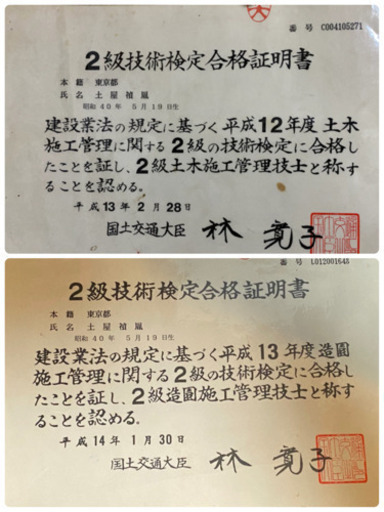 番号 C004105271
2級技術検定合格証明書
本籍 東京都
氏名 土屋禎嵐
昭和40年 5月19日生
建設業法の規定に基づく平成12年度土木
施工管理に関する2級の技術検定に合格し
たことを証し、2級土木施工管理技士と称す
ることを認める。
平成13年2月28日
国土交通大臣 林 寛子
番号 L012001648
2級技術検定合格証明書
本籍 東京都
氏名 土屋禎嵐
昭和40年 5月19日生
建設業法の規定に基づく平成13年度造園
施工管理に関する2級の技術検定に合格し
たことを証し、2級造園施工管理技士と称す
ることを認める。
平成14年1月30日
国土交通大臣 林 寛子